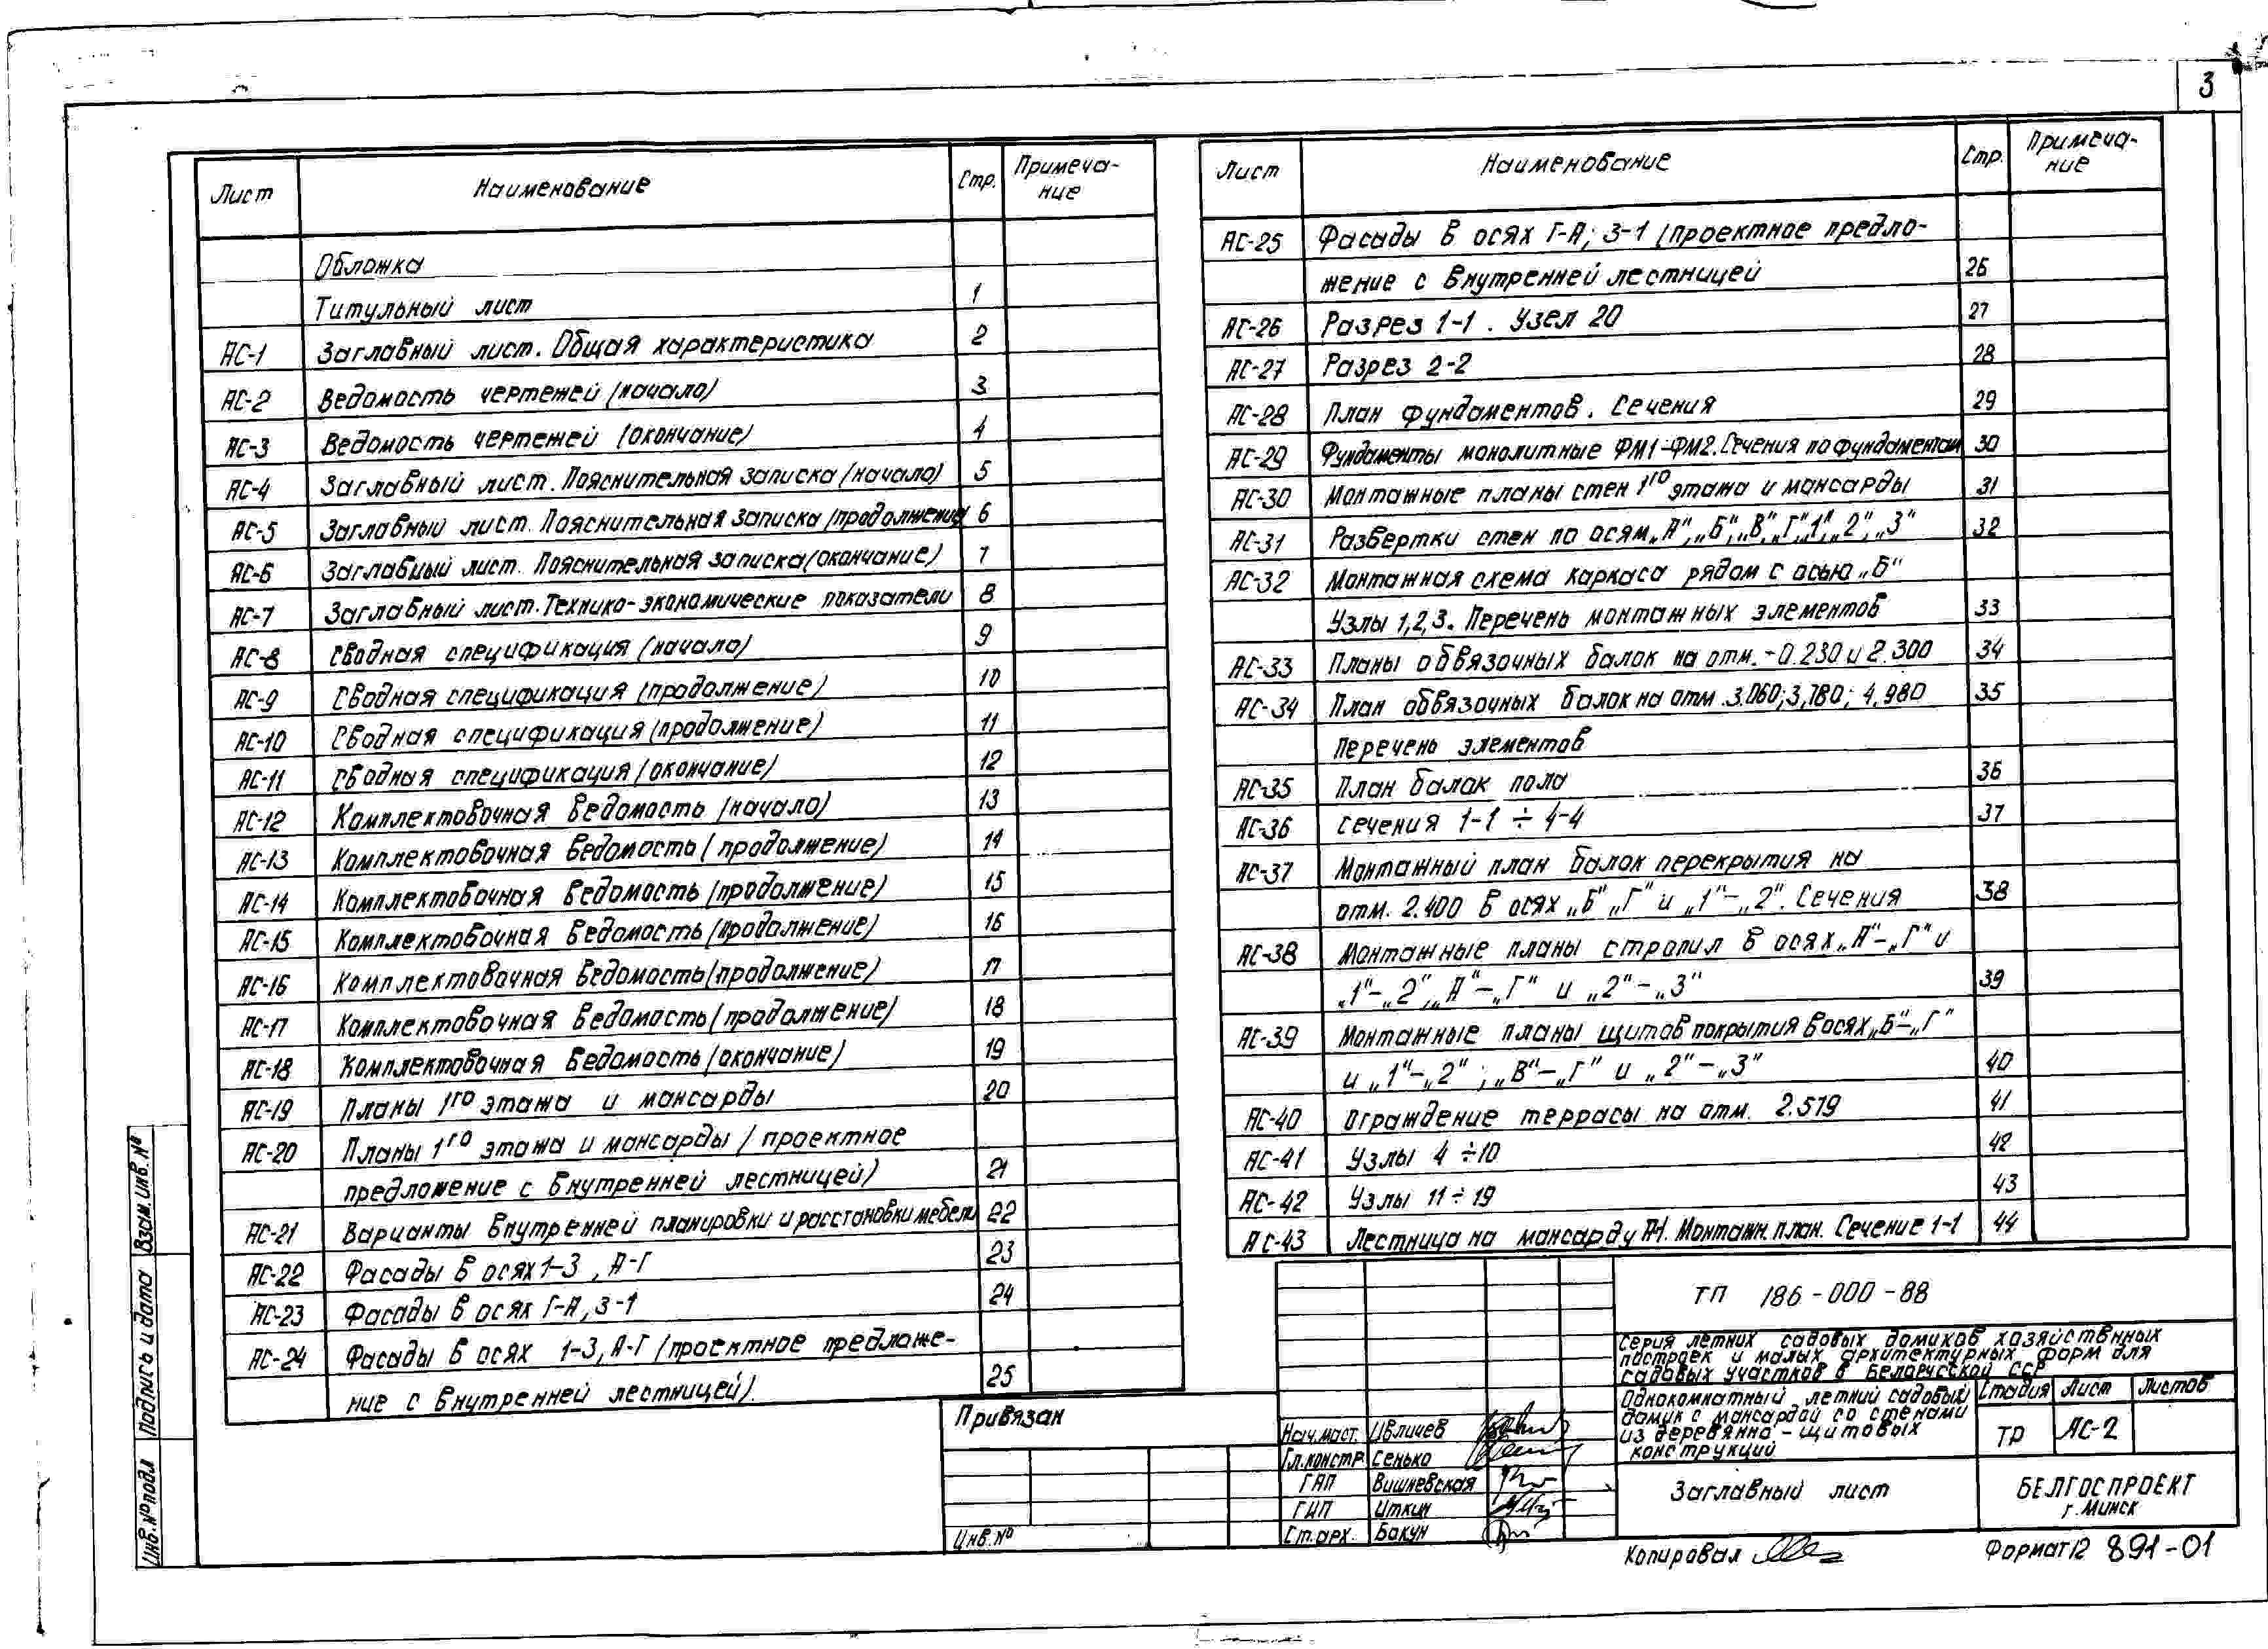 3
Лист Наименование Стр. Примеча-
ние
Обложка
Титульный лист 1
АС-1 Заглавный лист. Общая характеристика 2
АС-2 Ведомость чертежей (начало) 3
АС-3 Ведомость чертежей (окончание) 4
АС-4 Заглавный лист. Пояснительная записка (начало) 5
АС-5 Заглавный лист. Пояснительная записка (продолжение) 6
АС-6 Заглавный лист. Пояснительная записка (окончание) 7
АС-7 Заглавный лист. Технико-экономические показатели 8
АС-8 Сводная спецификация (начало) 9
АС-9 Сводная спецификация (продолжение) 10
АС-10 Сводная спецификация (продолжение) 11
АС-11 Сводная спецификация (окончание) 12
АС-12 Комплектовочная ведомость (начало) 13
АС-13 Комплектовочная ведомость (продолжение) 14
АС-14 Комплектовочная ведомость (продолжение) 15
АС-15 Комплектовочная ведомость (продолжение) 16
АС-16 Комплектовочная ведомость (продолжение) 17
АС-17 Комплектовочная ведомость (продолжение) 18
АС-18 Комплектовочная ведомость (окончание) 19
АС-19 Планы 1го этажа и мансарды 20
АС-20 Планы 1го этажа и мансарды (проектное
предложение с внутренней лестницей) 21
АС-21 Варианты внутренней планировки и расстановки мебели 22
АС-22 Фасады в осях 1-3, А-Г 23
АС-23 Фасады в осях Г-А, 3-1 24
АС-24 Фасады в осях 1-3, А-Г (проектное предложе-
ние с внутренней лестницей). 25
Лист Наименование Стр. Примеча-
ние
АС-25 Фасады в осях Г-А; 3-1 (проектное предло-
жение с внутренней лестницей 26
АС-26 Разрез 1-1. Узел 20 27
АС-27 Разрез 2-2 28
АС-28 План фундаментов. Сечения 29
АС-29 Фундаменты монолитные ФМ1-ФМ2. Сечения по фундаментам 30
АС-30 Монтажные планы стен 1го этажа и мансарды 31
АС-31 Развертки стен по осям „А", „Б", „В", „Г", „1", „2", „3" 32
АС-32 Монтажная схема каркаса рядом с осью „Б"
Узлы 1,2,3. Перечень монтажных элементов 33
АС-33 Планы обвязочных балок на отм. -0.230 и 2.300 34
АС-34 План обвязочных балок на отм. 3.060; 3,780; 4,980 35
Перечень элементов
АС-35 План балок пола 36
АС-36 Сечения 1-1 ÷ 4-4 37
АС-37 Монтажный план балок перекрытия на
отм. 2.400 в осях „Б" „Г" и „1"-„2". Сечения 38
АС-38 Монтажные планы стропил в осях „А"-„Г" и
„1"-„2", „А"-„Г" и „2"-„3" 39
АС-39 Монтажные планы щитов покрытия в осях „Б"-„Г"
и „1"-„2"; „В"-„Г" и „2"-„3" 40
АС-40 Ограждение террасы на отм. 2.579 41
АС-41 Узлы 4÷10 42
АС-42 Узлы 11÷19 43
АС-43 Лестница на мансарду Л-1. Монтажн. план. Сечение 1-1 44
ТП 186-000-88
Серия летних садовых домиков хозяйственных
построек и малых архитектурных форм для
садовых участков в Белорусской ССР
Однокомнатный летний садовый
домик с мансардой со стенами
из деревянно-щитовых
конструкций
Стадия Лист Листов
ТР АС-2
Заглавный лист
БЕЛГОСПРОЕКТ
г. Минск
Привязан
Инв.№
Нач.маст. Ивличев
Гл.констр. Сенько
ГАП Вишневская
ГИП Иткин
Ст.арх. Бакун
Копировал
Формат 12 891-01
Взам.инв.№
Подпись и дата
Инв.№подл